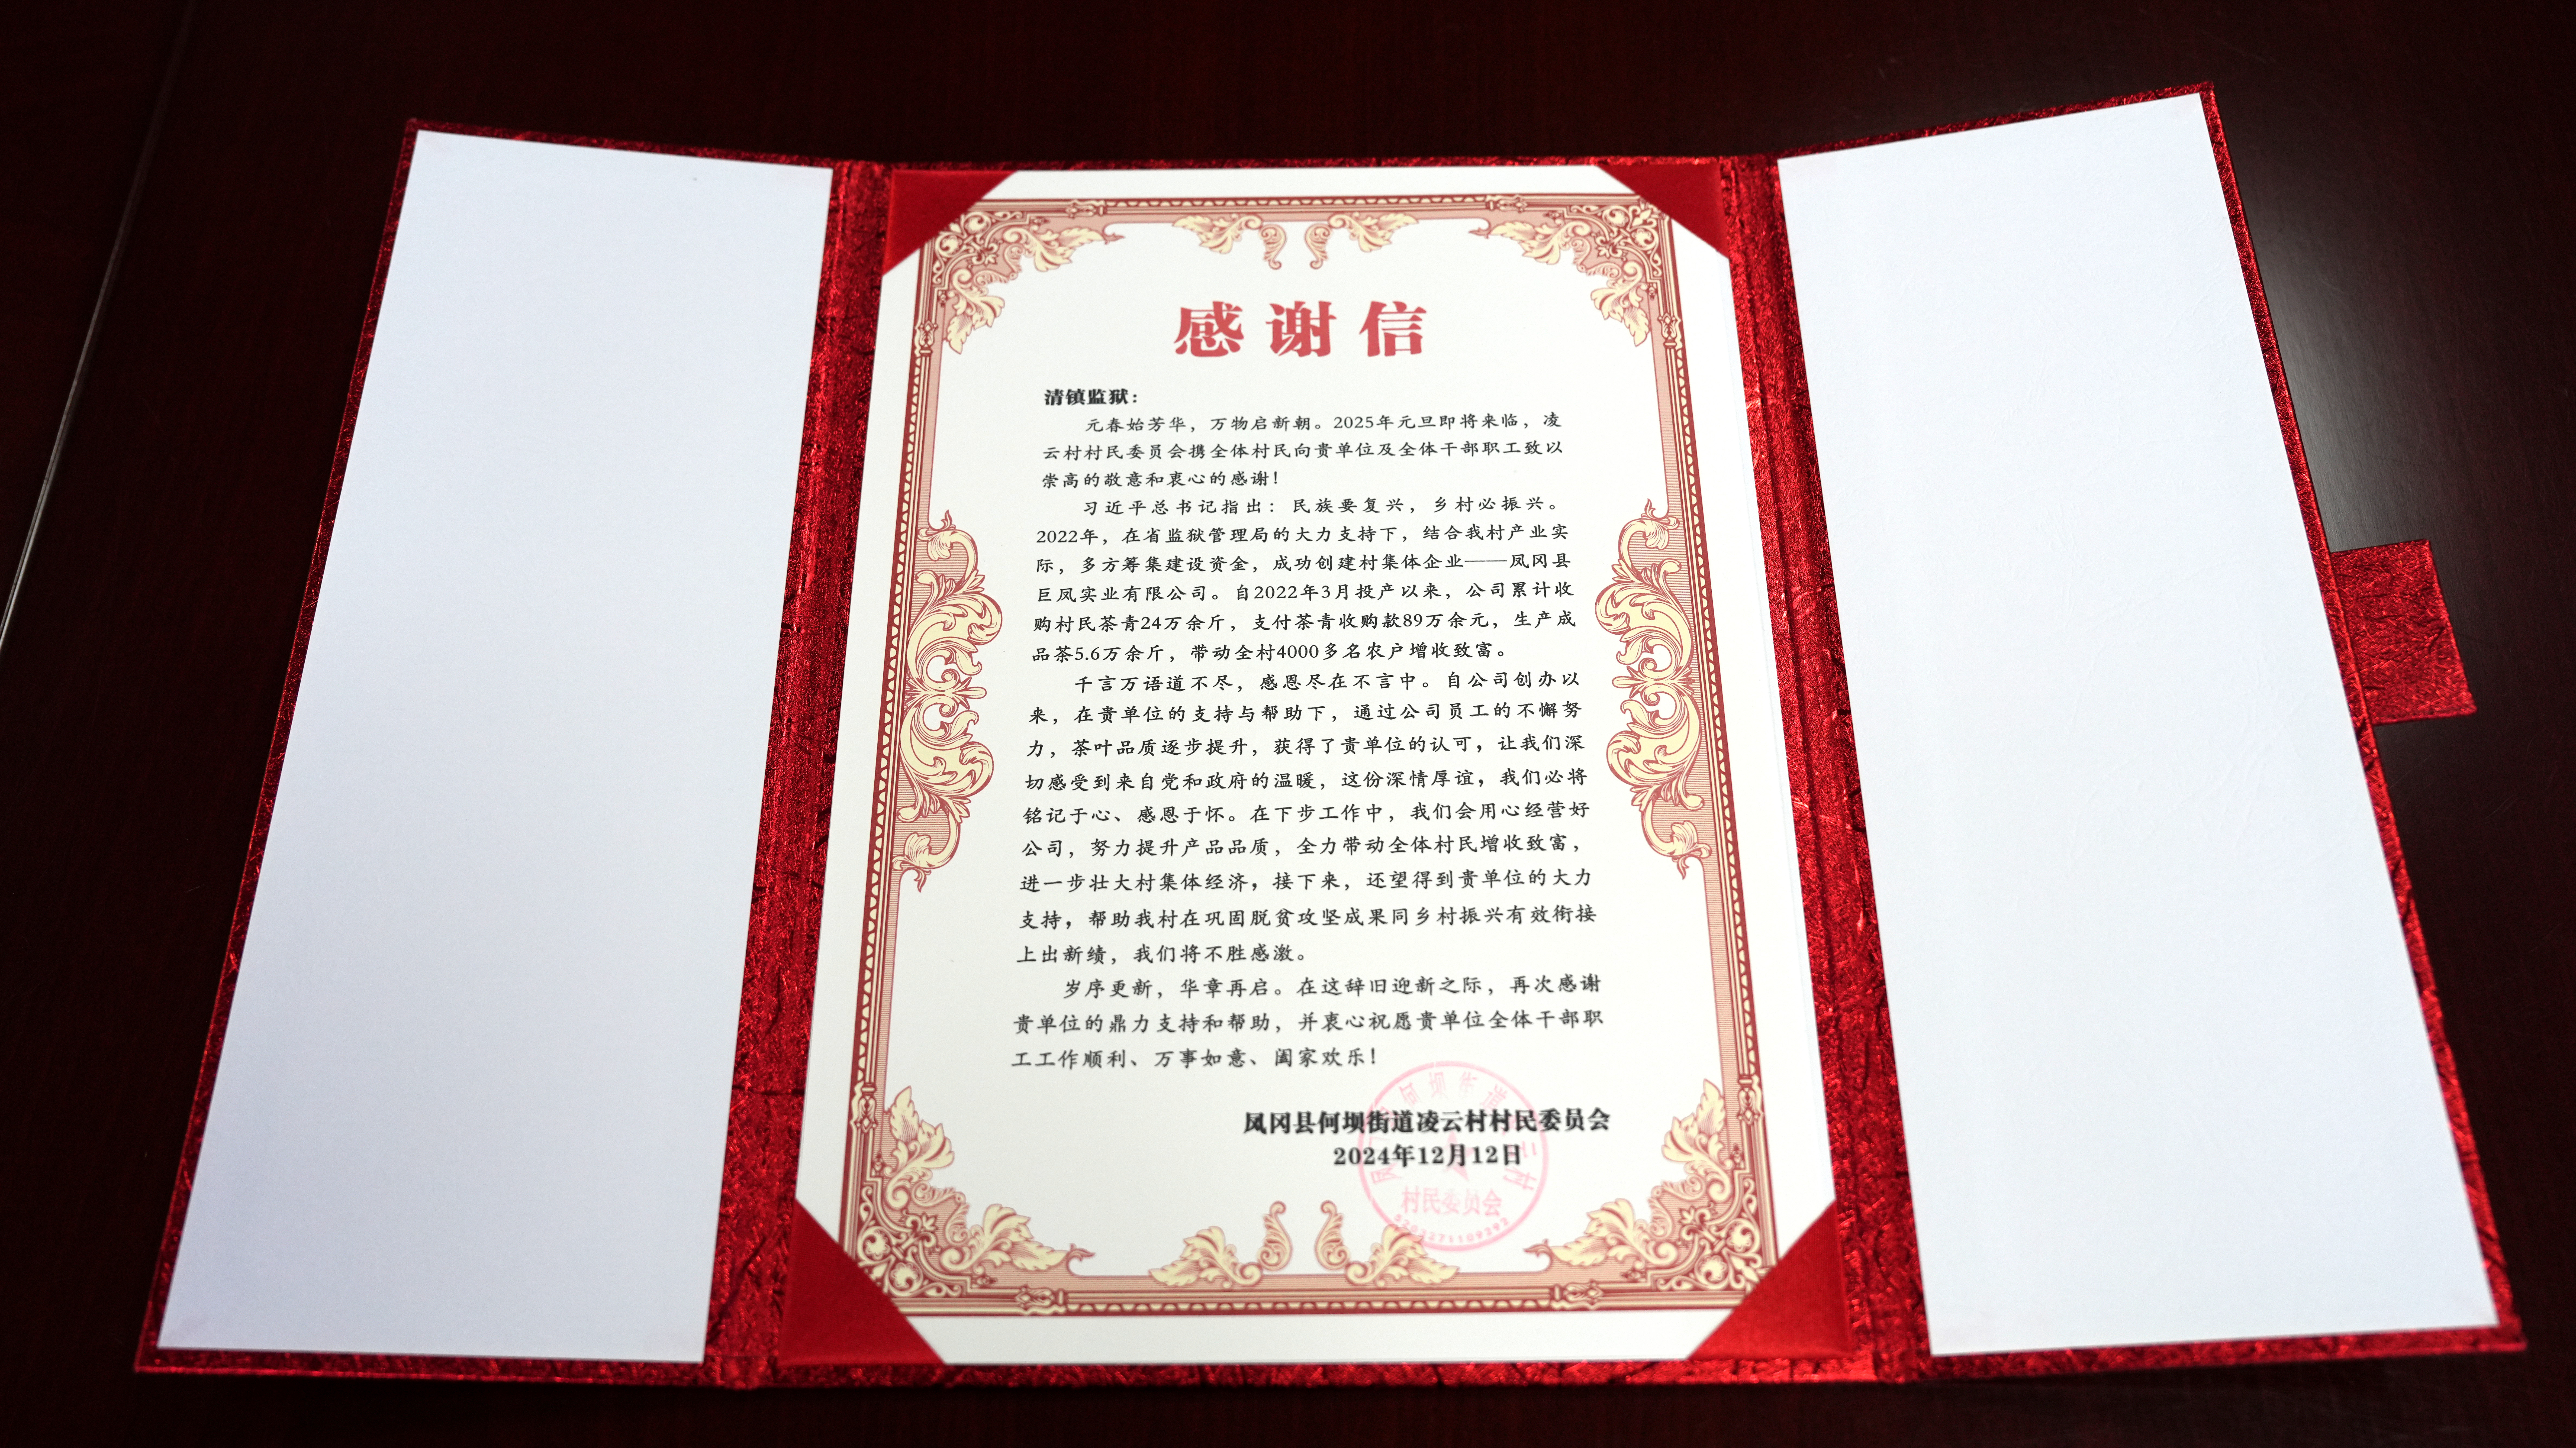 感谢信
清镇监狱：
元春始芳华，万物启新朝。2025年元旦即将来临，凌
云村村民委员会携全体村民向贵单位及全体干部职工致以
崇高的敬意和衷心的感谢！
习近平总书记指出：民族要复兴，乡村必振兴。
2022年，在省监狱管理局的大力支持下，结合我村产业实
际，多方筹集建设资金，成功创建村集体企业——凤冈县
巨凤实业有限公司。自2022年3月投产以来，公司累计收
购村民茶青24万余斤，支付茶青收购款89万余元，生产成
品茶5.6万余斤，带动全村4000多名农户增收致富。
千言万语道不尽，感恩尽在不言中。自公司创办以
来，在贵单位的支持与帮助下，通过公司员工的不懈努
力，茶叶品质逐步提升，获得了贵单位的认可，让我们深
切感受到来自党和政府的温暖，这份深情厚谊，我们必将
铭记于心、感恩于怀。在下步工作中，我们会用心经营好
公司，努力提升产品品质，全力带动全体村民增收致富，
进一步壮大村集体经济，接下来，还望得到贵单位的大力
支持，帮助我村在巩固脱贫攻坚成果同乡村振兴有效衔接
上出新绩，我们将不胜感激。
岁序更新，华章再启。在这辞旧迎新之际，再次感谢
贵单位的鼎力支持和帮助，并衷心祝愿贵单位全体干部职
工工作顺利、万事如意、阖家欢乐！
凤冈县何坝街道凌云村村民委员会
2024年12月12日
村民委员会